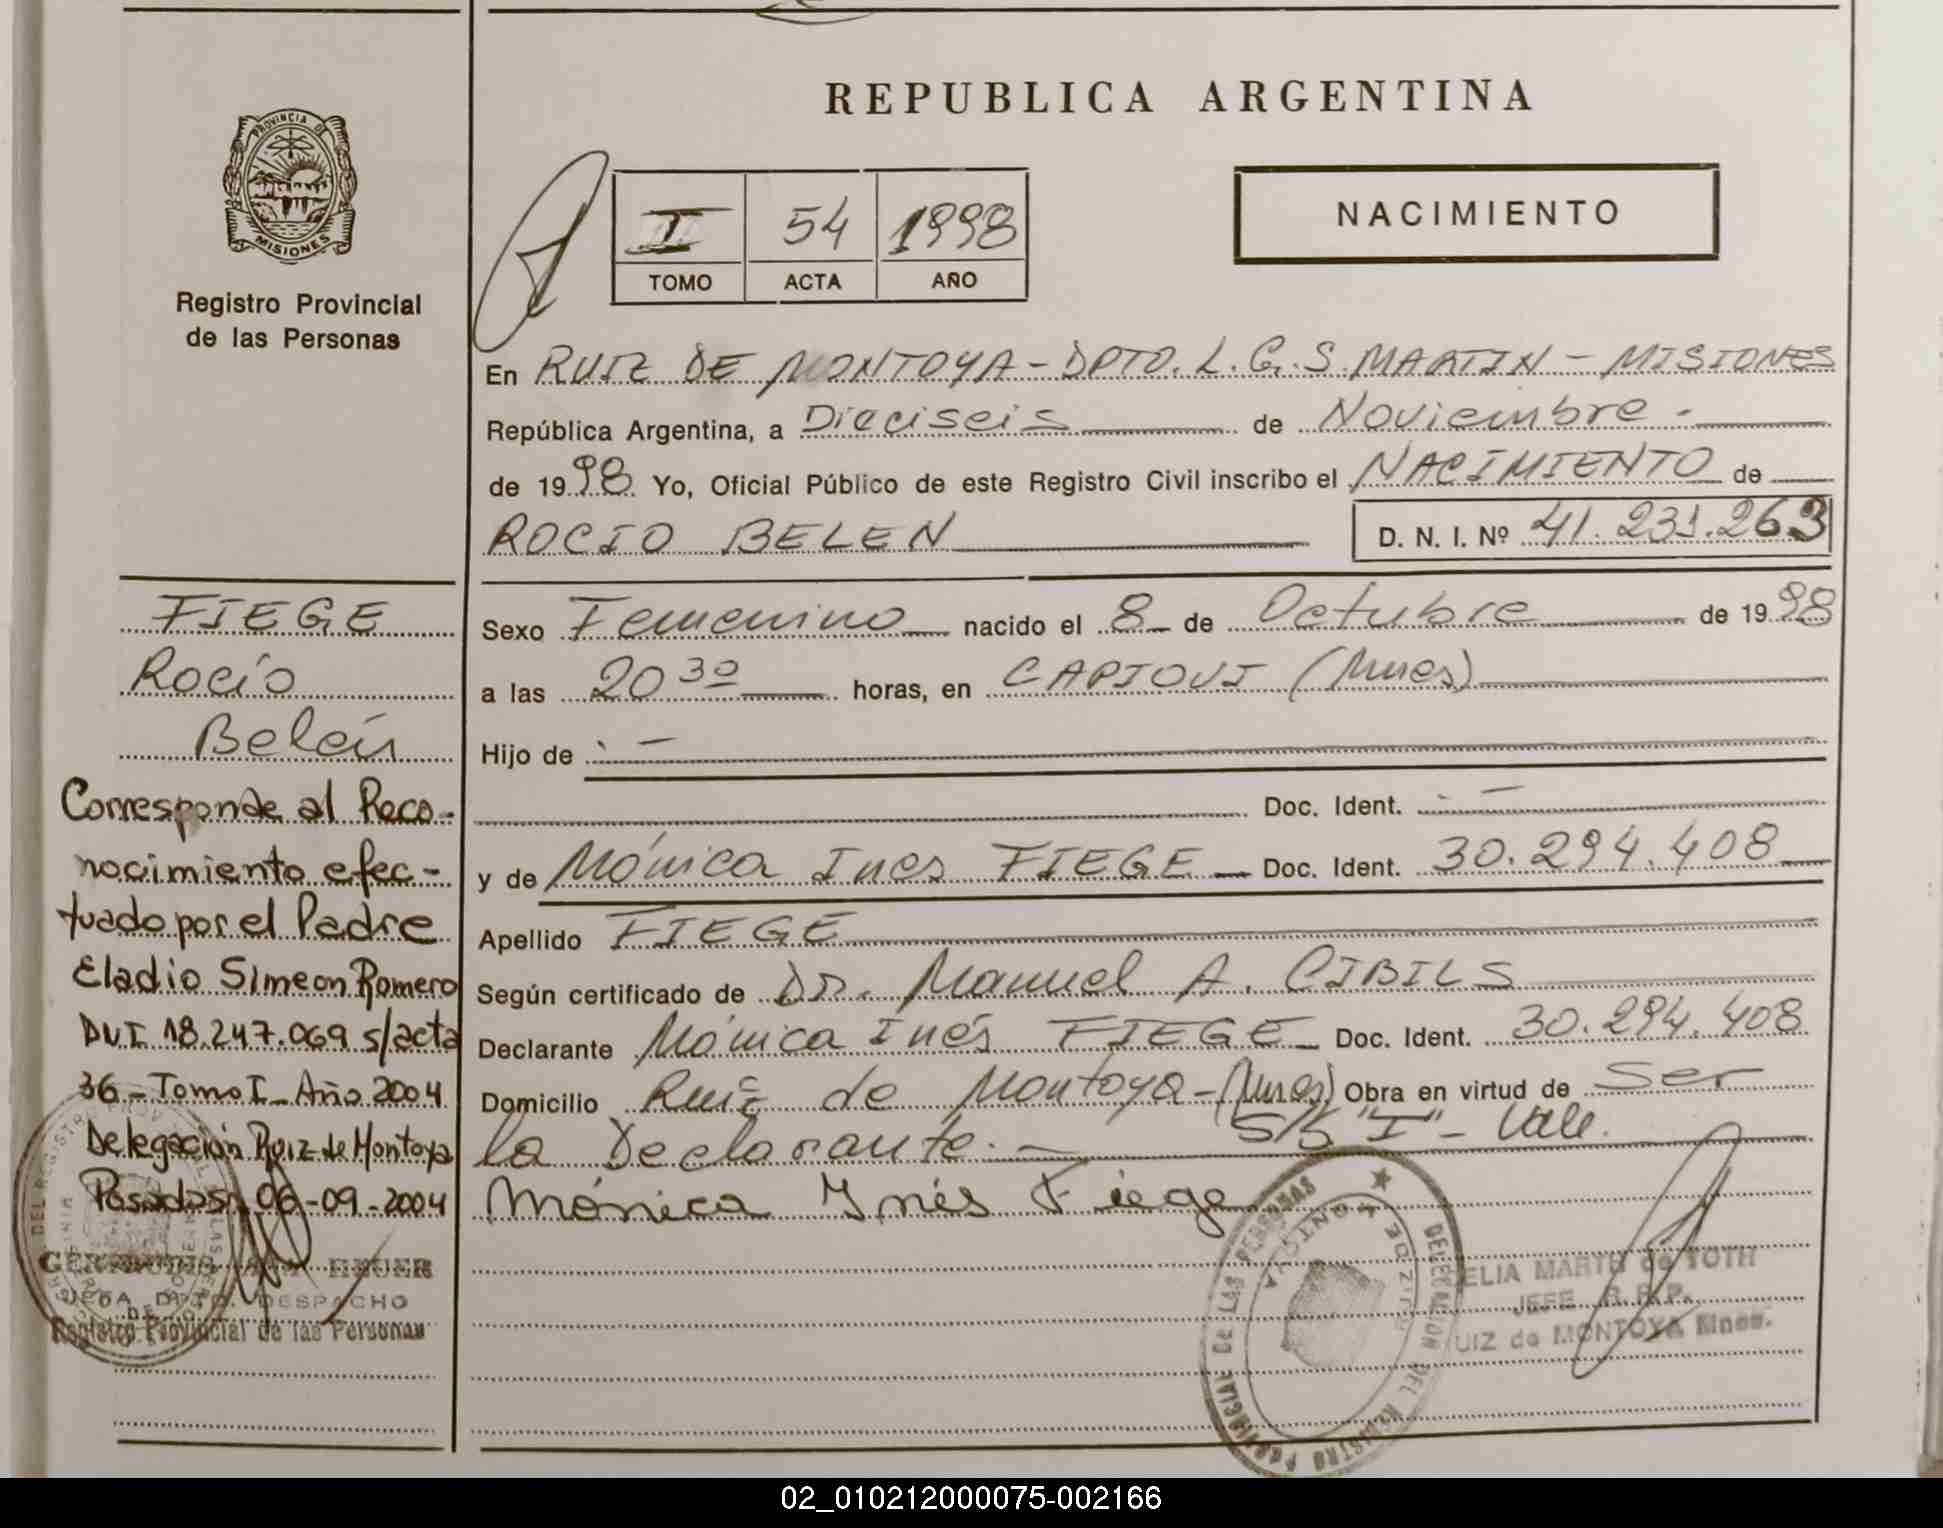 REPUBLICA ARGENTINA
PROVINCIA DE
MISIONES
Registro Provincial
de las Personas
I 54 1998
TOMO ACTA AÑO
NACIMIENTO
En RUIZ DE MONTOYA - DPTO. L. G. S. MARTIN - MISIONES
República Argentina, a Dieciseis de Noviembre.-
de 1998 Yo, Oficial Público de este Registro Civil inscribo el NACIMIENTO de
ROCIO BELEN D. N. I. Nº 41.231.263
Sexo Femenino nacido el 8 de Octubre de 1998
a las 20 30 horas, en CAPIOVI (Mnes)
Hijo de . —
Doc. Ident. . —
y de Mónica Ines FIEGE Doc. Ident. 30.294.408
Apellido FIEGE
Según certificado de Dr. Manuel A. CIBILS
Declarante Mónica Inés FIEGE Doc. Ident. 30.294.408
Domicilio Ruiz de Montoya-(Mnes) Obra en virtud de Ser
la Declarante.- S/b "I" - Vale.
Mónica Inés Fiege
FIEGE
Rocío
Belén
Corresponde al Reco-
nocimiento efec-
tuado por el Padre
Eladio Simeon Romero
DNI 18.247.069 s/acta
36 - Tomo I - Año 2004
Delegación Ruiz de Montoya
Posadas, 06-09-2004
HEUER
JEFA DPTO. DESPACHO
Registro Provincial de las Personas
DELEGACION DEL REGISTRO PROVINCIAL DE LAS PERSONAS
RUIZ DE MONTOYA
ELIA MARTH de TOTH
JEFE R.R.P.
RUIZ de MONTOYA Mnes.
02_010212000075-002166